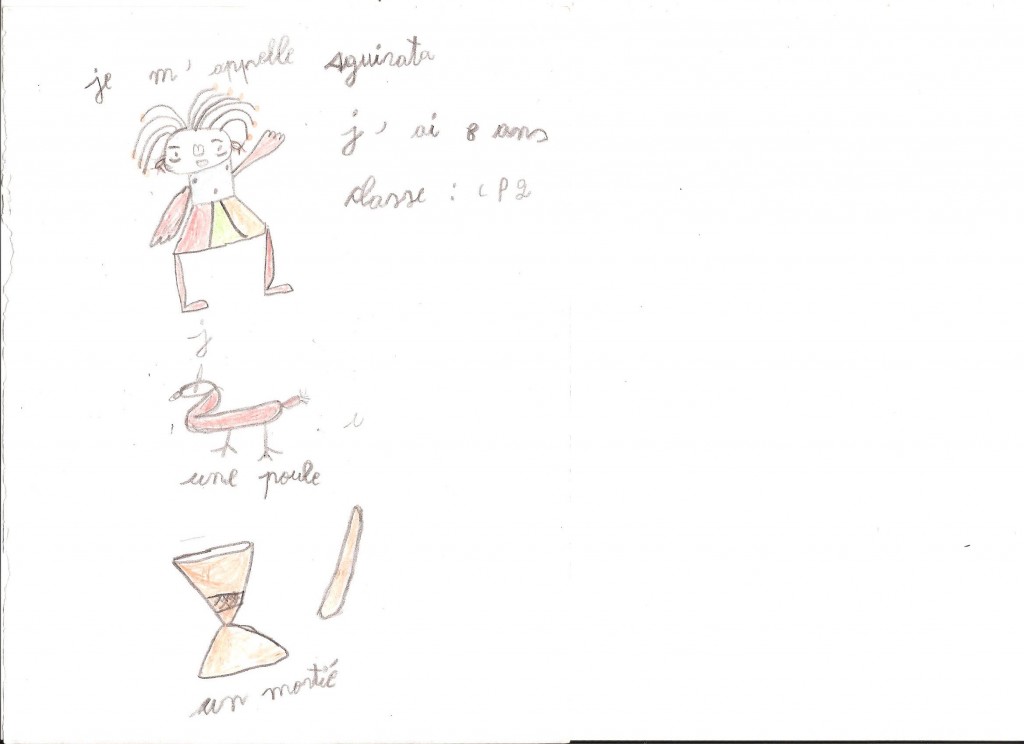 je m' appelle Aguirata
j' ai 8 ans
classe : CP2
j
une poule
un mortié